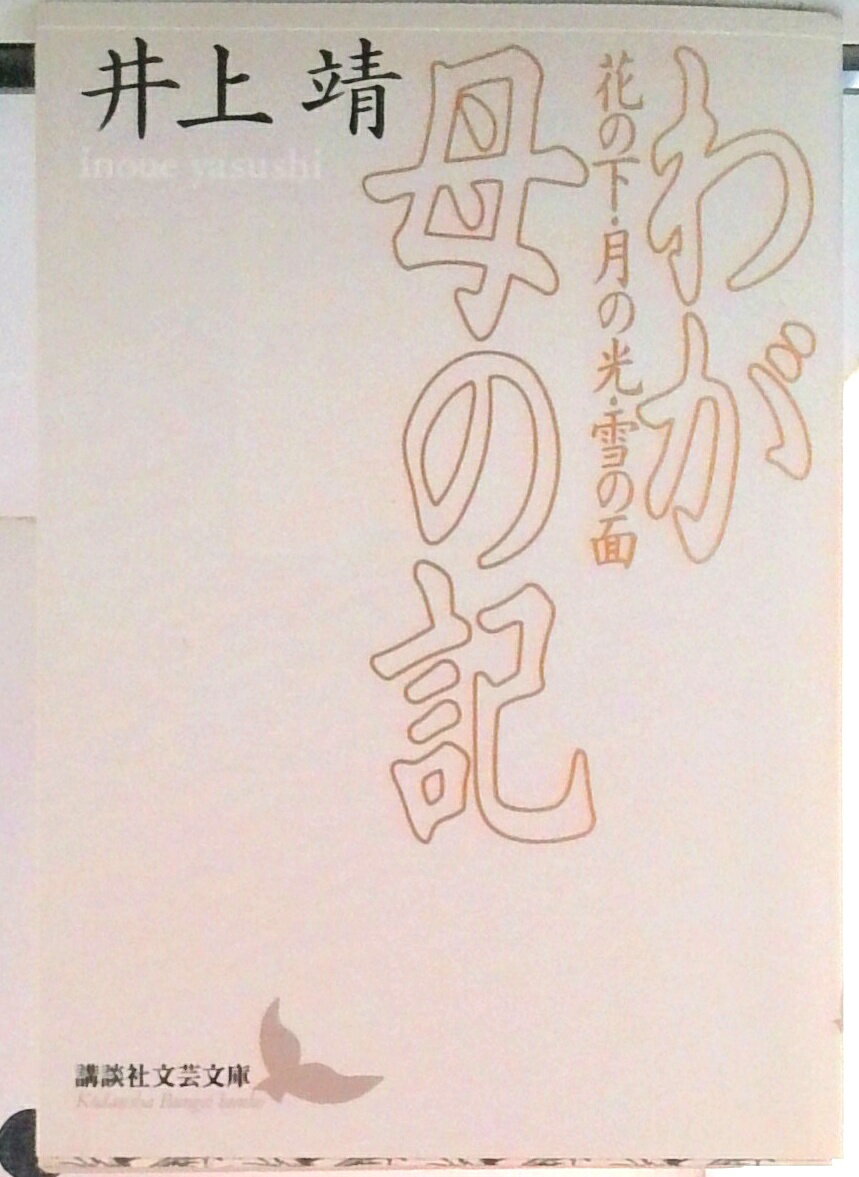 わが
母の記
花の下・月の光・雪の面
井上 靖
inoue yasushi
講談社文芸文庫
Kodansha Bungei bunko